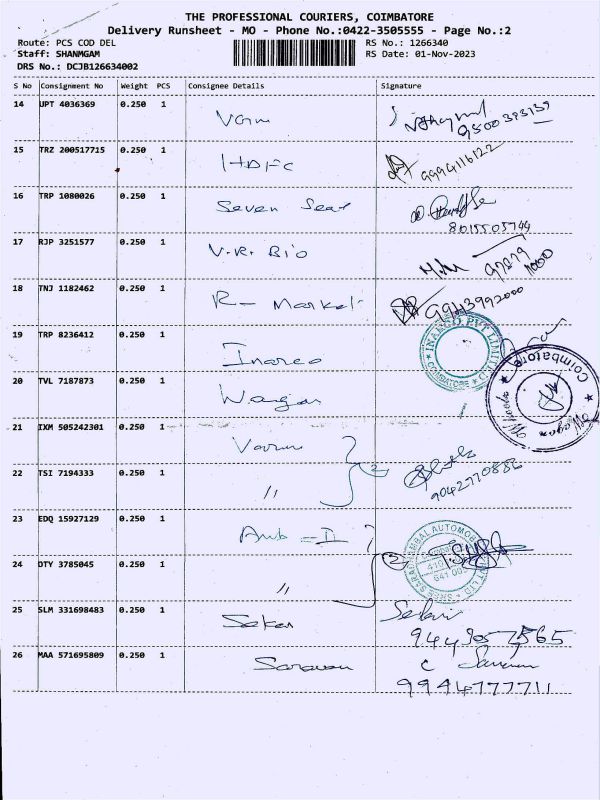 THE PROFESSIONAL COURIERS, COIMBATORE
Delivery Runsheet - MO - Phone No.:0422-3505555 - Page No.:2
Route: PCS COD DEL
Staff: SHANMGAM
DRS No.: DCJB126634002
RS No.: 1266340
RS Date: 01-Nov-2023
S No Consignment No Weight PCS Consignee Details Signature
14 UPT 4036369 0.250 1
9500393139
15 TRZ 200517715 0.250 1 HDFC
9994116122
16 TRP 1080026 0.250 1 Seven Seat
8015505744
17 RJP 3251577 0.250 1 V.R. Bio
97879
18 TNJ 1182462 0.250 1 R- Market
9943992000
19 TRP 8236412 0.250 1 Inarco
INARCO PVT LIMITED
COIMBATORE
20 TVL 7187873 0.250 1
Coimbatore
21 IXM 505242301 0.250 1
22 TSI 7194333 0.250 1 〃 2
9042770882
23 EDQ 15927129 0.250 1 Amb = II
24 DTY 3785045 0.250 1 〃 2
25 SLM 331698483 0.250 1 Sekar
9443057565
26 MAA 571695809 0.250 1 Saravan
9994777711